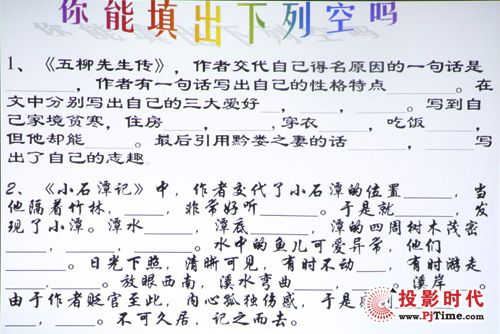 你能填出下列空吗
1、《五柳先生传》，作者交代自己得名原因的一句话是
____，作者有一句话写出自己的性格特点____。在
文中分别写出自己的三大爱好____，____，____。写到自
己家境贫寒，住房____，____,穿衣____，吃饭____，
但他却能____。最后引用黔娄之妻的话____，____写
出了自己的志趣
2、《小石潭记》中，作者交代了小石潭的位置____，当
他隔着竹林，____，非常好听____。于是就____，发
现了小潭。潭水____，潭底____，潭的四周树木茂密
____，____，____。水中的鱼儿可爱异常，他们
____。日光下照，清晰可见，有时不动____，有时游走
____，____。放眼西南，溪水弯曲____，____。溪岸____。
由于作者贬官至此，内心孤独伤感，于是感到
____。不可久居，记之而去。
投影时代
www.PjTime.com